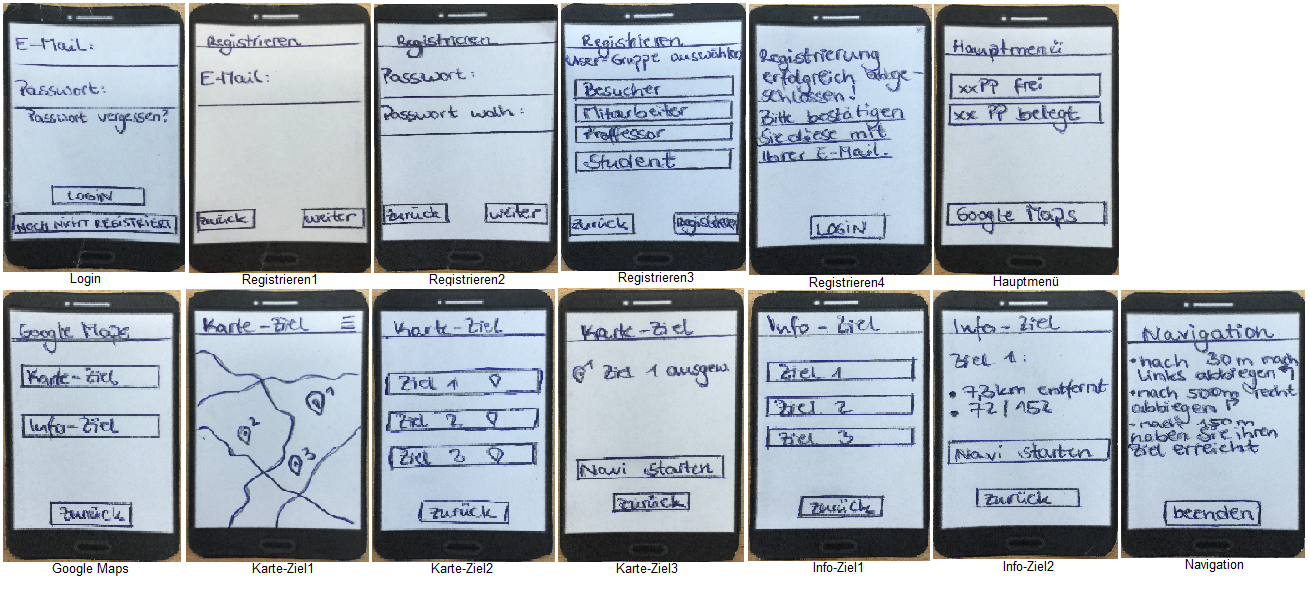 E-Mail:
Passwort:
Passwort vergessen?
LOGIN
NOCH NICHT REGISTRIERT
Login
Registrieren
E-Mail:
zurück
weiter
Registrieren1
Registrieren
Passwort:
Passwort wdh:
zurück
weiter
Registrieren2
Registrieren
User-Gruppe auswählen
Besucher
Mitarbeiter
Proffessor
Student
zurück
Registrieren
Registrieren3
x
Registrierung
erfolgreich abge-
schlossen!
Bitte bestätigen
Sie diese mit
Ihrer E-Mail.
LOGIN
Registrieren4
Hauptmenü
xx PP frei
xx PP belegt
Google Maps
Hauptmenü
Google Maps
Karte-Ziel
Info-Ziel
zurück
Google Maps
Karte-Ziel
1
2
3
Karte-Ziel1
Karte-Ziel
Ziel 1
Ziel 2
Ziel 3
zurück
Karte-Ziel2
Karte-Ziel
1 Ziel 1 ausgew.
Navi starten
zurück
Karte-Ziel3
Info-Ziel
Ziel 1
Ziel 2
Ziel 3
zurück
Info-Ziel1
Info-Ziel
Ziel 1:
• 7,3km entfernt
• 72/152
Navi starten
zurück
Info-Ziel2
Navigation
• nach 30m nach
Links abbiegen
• nach 500m recht
abbiegen
- nach 150m
haben Sie ihren
Ziel erreicht
beenden
Navigation